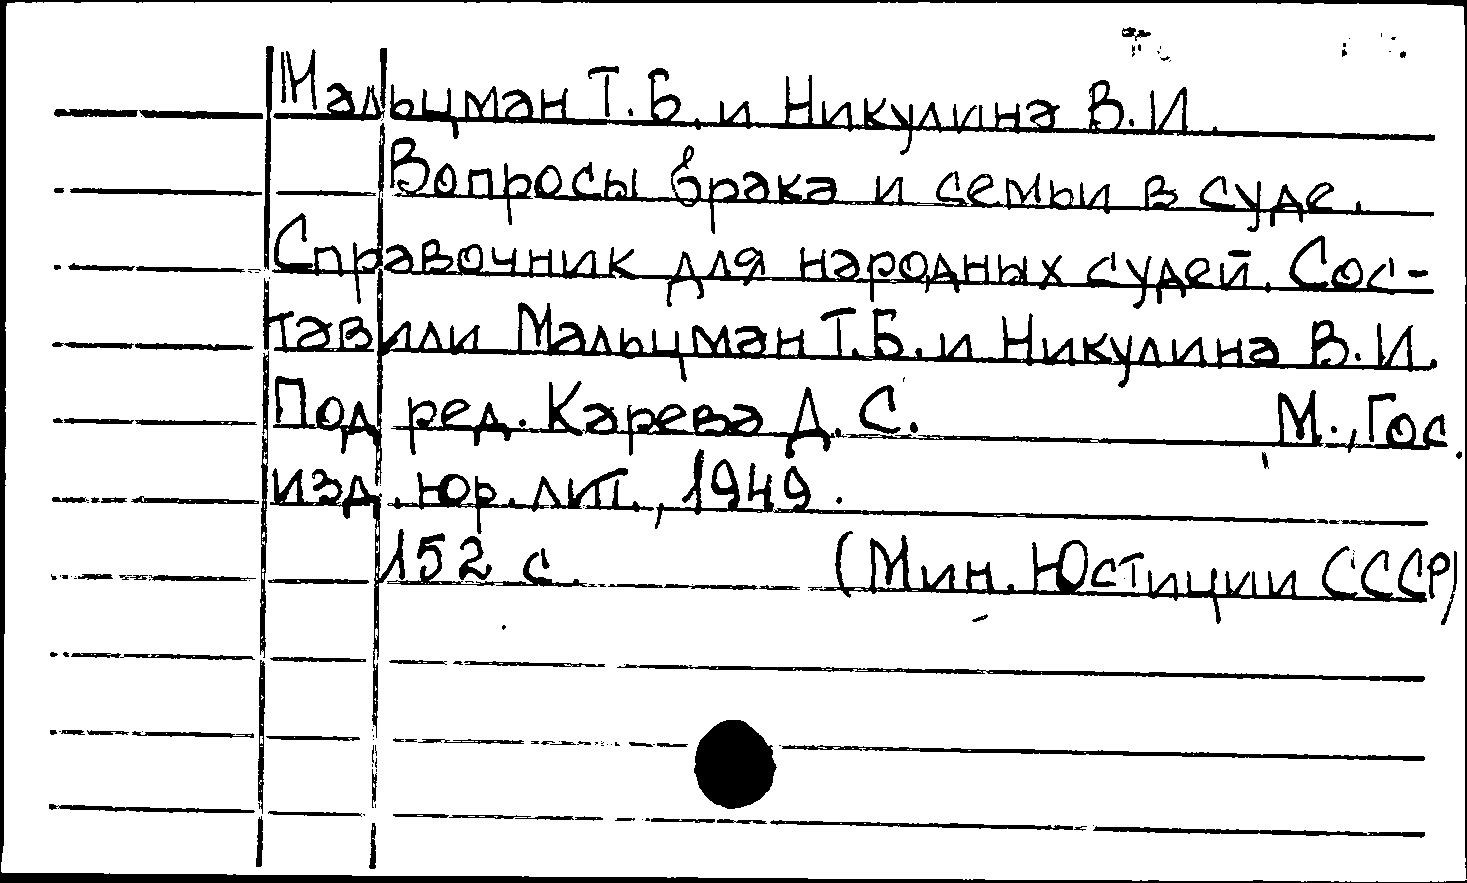 Мальцман Т.Б. и Никулина В.И.
Вопросы брака и семьи в суде.
Справочник для народных судей. Сос-
тавили Мальцман Т.Б. и Никулина В.И.
Под ред. Карева Д.С. М., Гос.
изд. юр. лит., 1949.
152 с. (Мин. Юстиции СССР)